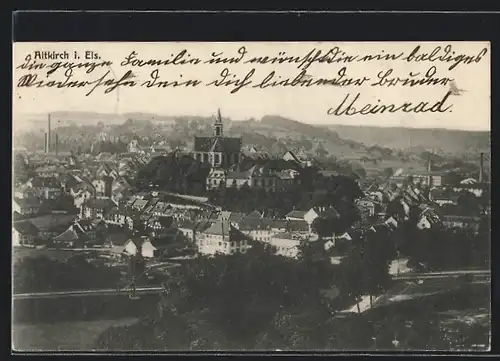 Altkirch i. Els.
die ganze Familie und wünscht die ein baldiges
Wiedersehn dein dich liebender bruder
Meinrad